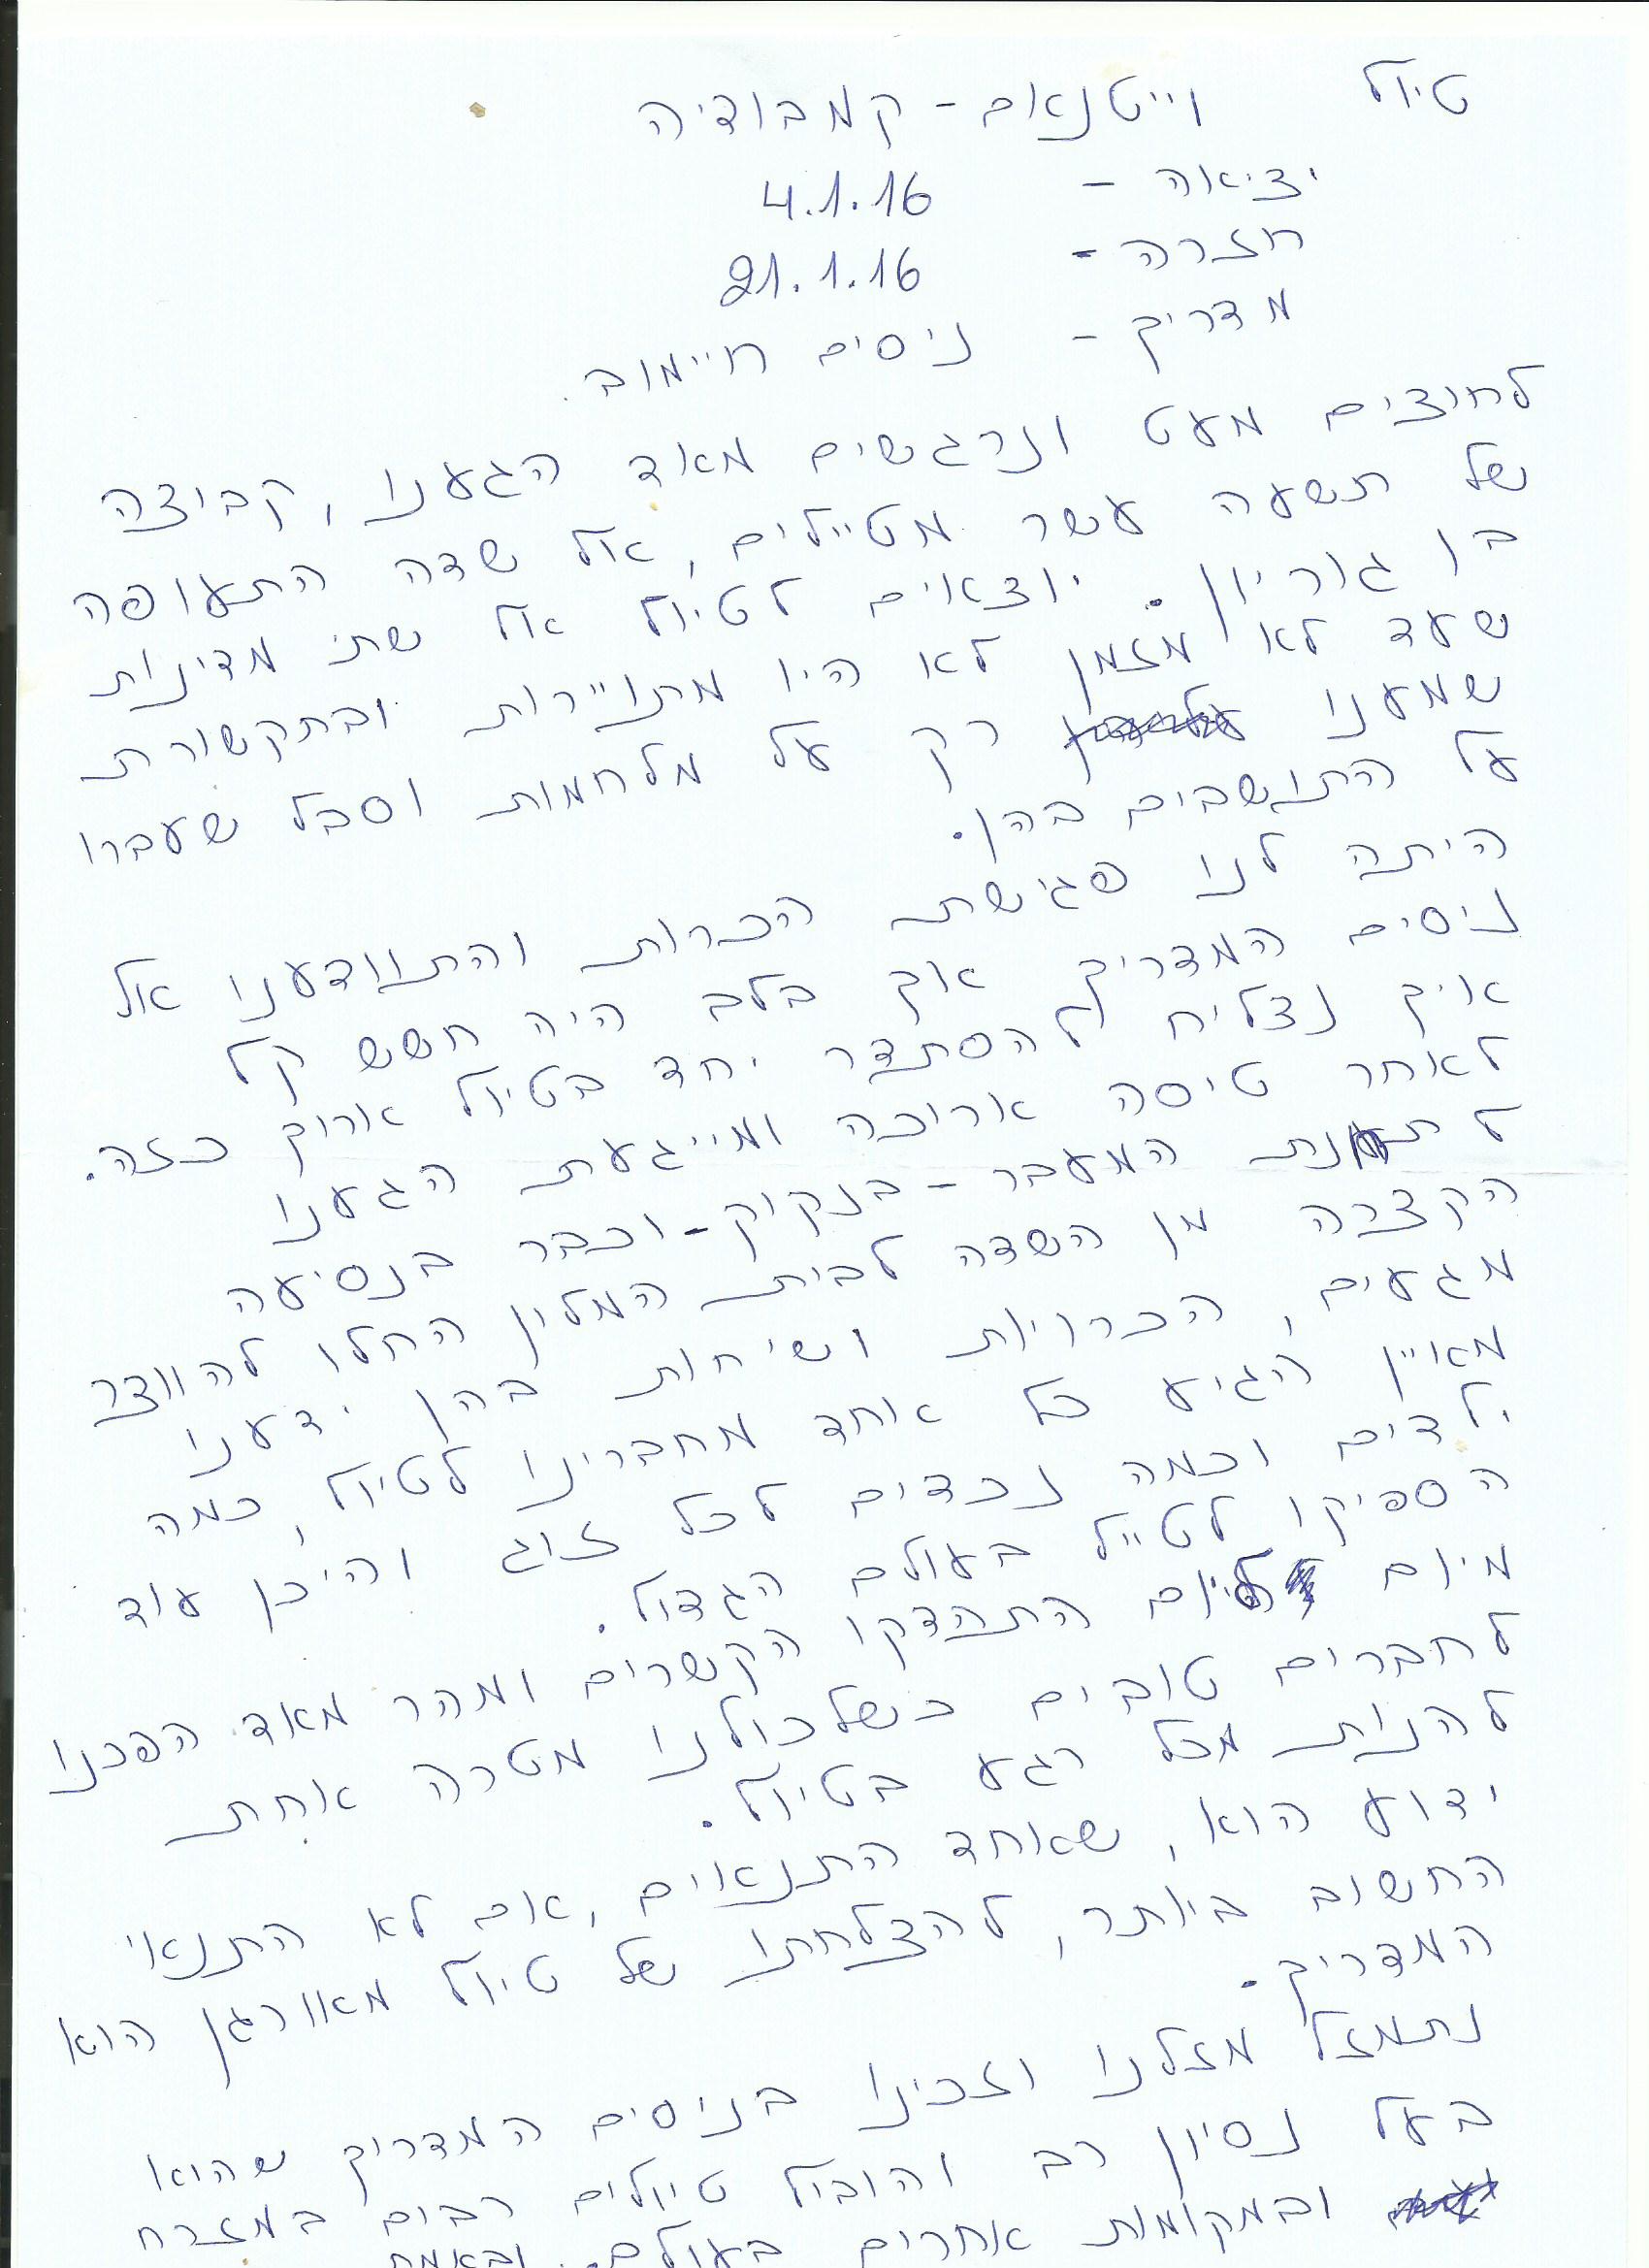 טיול וייטנאם - קמבודיה
יציאה - 4.1.16
חזרה - 21.1.16
מדריך - ניסים חיימוב.
לחוצים מעט ונרגשים מאד הגענו, קבוצה
של תשעה עשר מטיילים, אל שדה התעופה
בן גוריון. יוצאים לטיול אל שתי מדינות
שעד לא מזמן לא היו מתויירות ובתקשורת
שמענו רק על מלחמות וסבל שעברו
על התושבים בהן.
היתה לנו פגישת הכרות והתוודענו אל
ניסים המדריך אך בלב היה חשש קל
איך נצליח להסתדר יחד בטיול ארוך כזה.
לאחר טיסה ארוכה ומייגעת הגענו
לתחנת המעבר - בנקוק - וכבר בנסיעה
הקצרה מן השדה לבית המלון החלו להווצר
מגעים, הכרויות ושיחות בהן ידענו
מאיין הגיע כל אחד מחברינו לטיול, כמה
ילדים וכמה נכדים לכל זוג והיכן עוד
הספיקו לטייל בעולם הגדול.
מיום ליום התהדקו הקשרים ומהר מאד הפכנו
לחברים טובים כשלכולנו מטרה אחת
להנות מכל רגע בטיול.
ידוע הוא, שאחד התנאים, אם לא התנאי
החשוב ביותר, להצלחתו של טיול מאורגן הוא
המדריך.
נתמזל מזלנו וזכינו בניסים המדריך שהוא
בעל נסיון רב והוביל טיולים רבים במזרח
ובמקומות אחרים בעולם. ובאמת